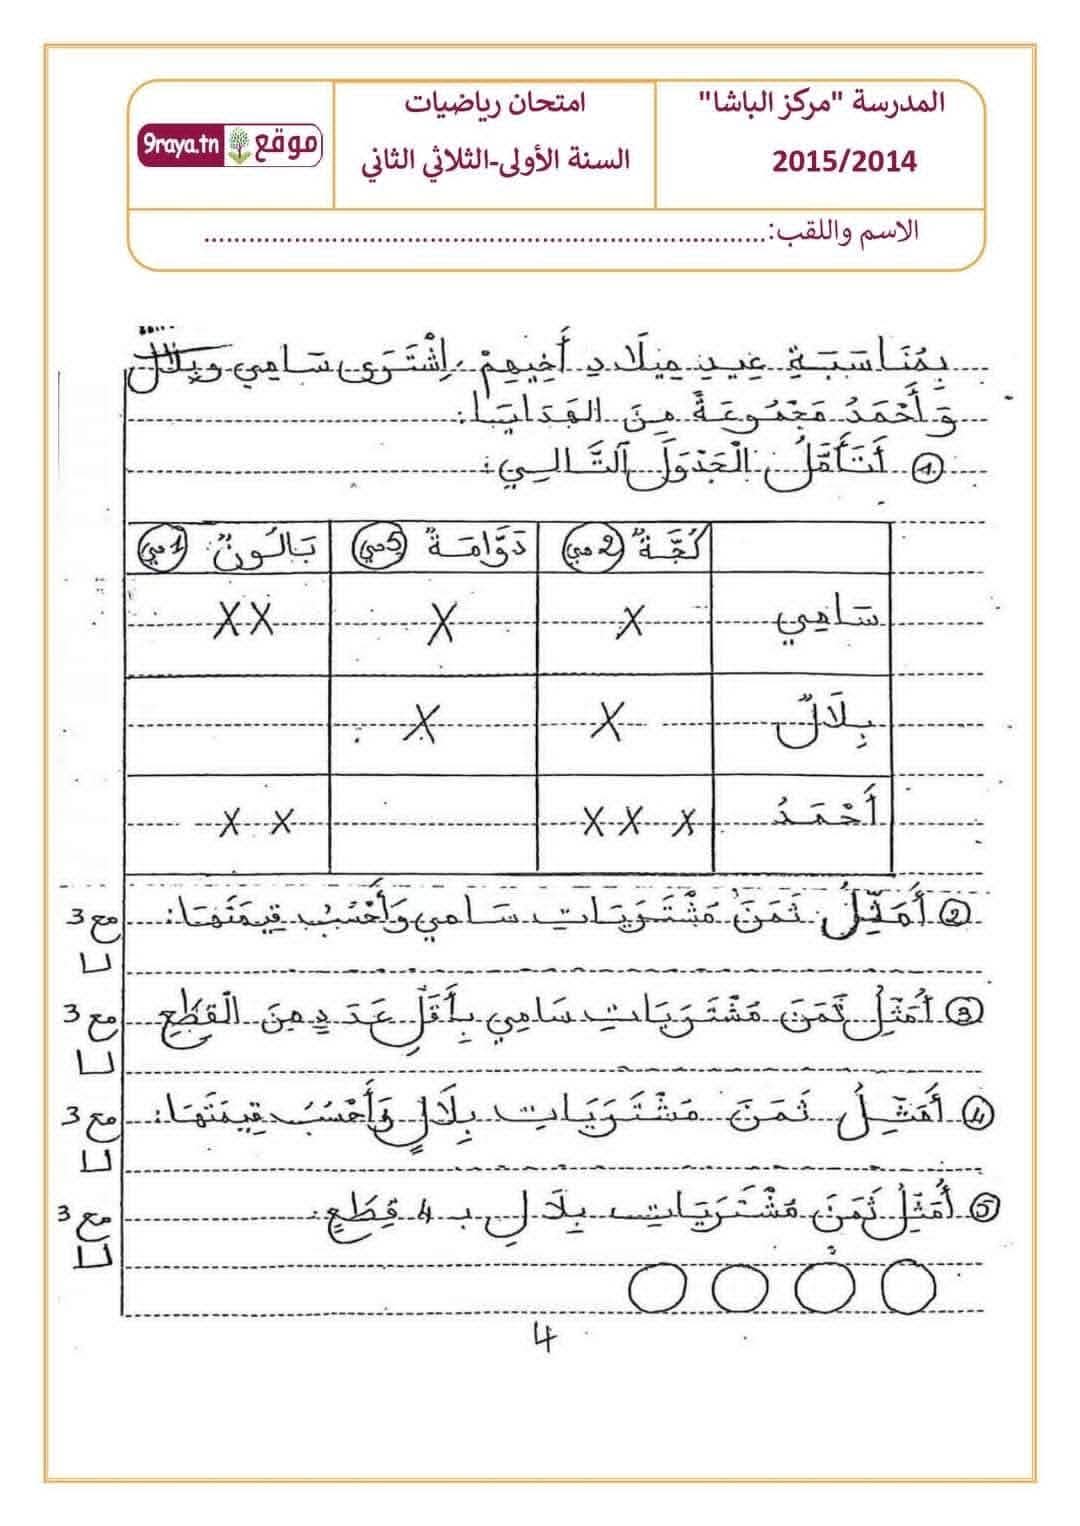 المدرسة "مركز الباشا"
2015/2014
امتحان رياضيات
السنة الأولى-الثلاثي الثاني
موقع 9raya.tn
الاسم واللقب:............................................................................
بِمُنَاسَبَةِ عِيدِ مِيلَادِ أَخِيهِمْ، اِشْتَرَى سَامِي وَبِلَالٌ
وَأَحْمَدُ مَجْمُوعَةً مِنَ الهَدَايَا:
1 أَتَأَمَّلُ الْجَدْوَلَ التَّالِي:
كُجَّةٌ 2 مي دَوَّامَةٌ 5 مي بَالُونٌ 1 مي
سَامِي X X X X
بِلَالٌ X X
أَحْمَدُ X X X X X
2 أُمَثِّلُ ثَمَنَ مُشْتَرَيَاتِ سَامِي وَأَحْسُبُ قِيمَتَهَا: مع 3
3 أُمَثِّلُ ثَمَنَ مُشْتَرَيَاتِ سَامِي بِأَقَلِّ عَدَدٍ مِنَ الْقِطَعِ مع 3
4 أُمَثِّلُ ثَمَنَ مُشْتَرَيَاتِ بِلَالٍ وَأَحْسُبُ قِيمَتَهَا: مع 3
5 أُمَثِّلُ ثَمَنَ مُشْتَرَيَاتِ بِلَالِ بـ 4 قِطَعٍ: مع 3
4